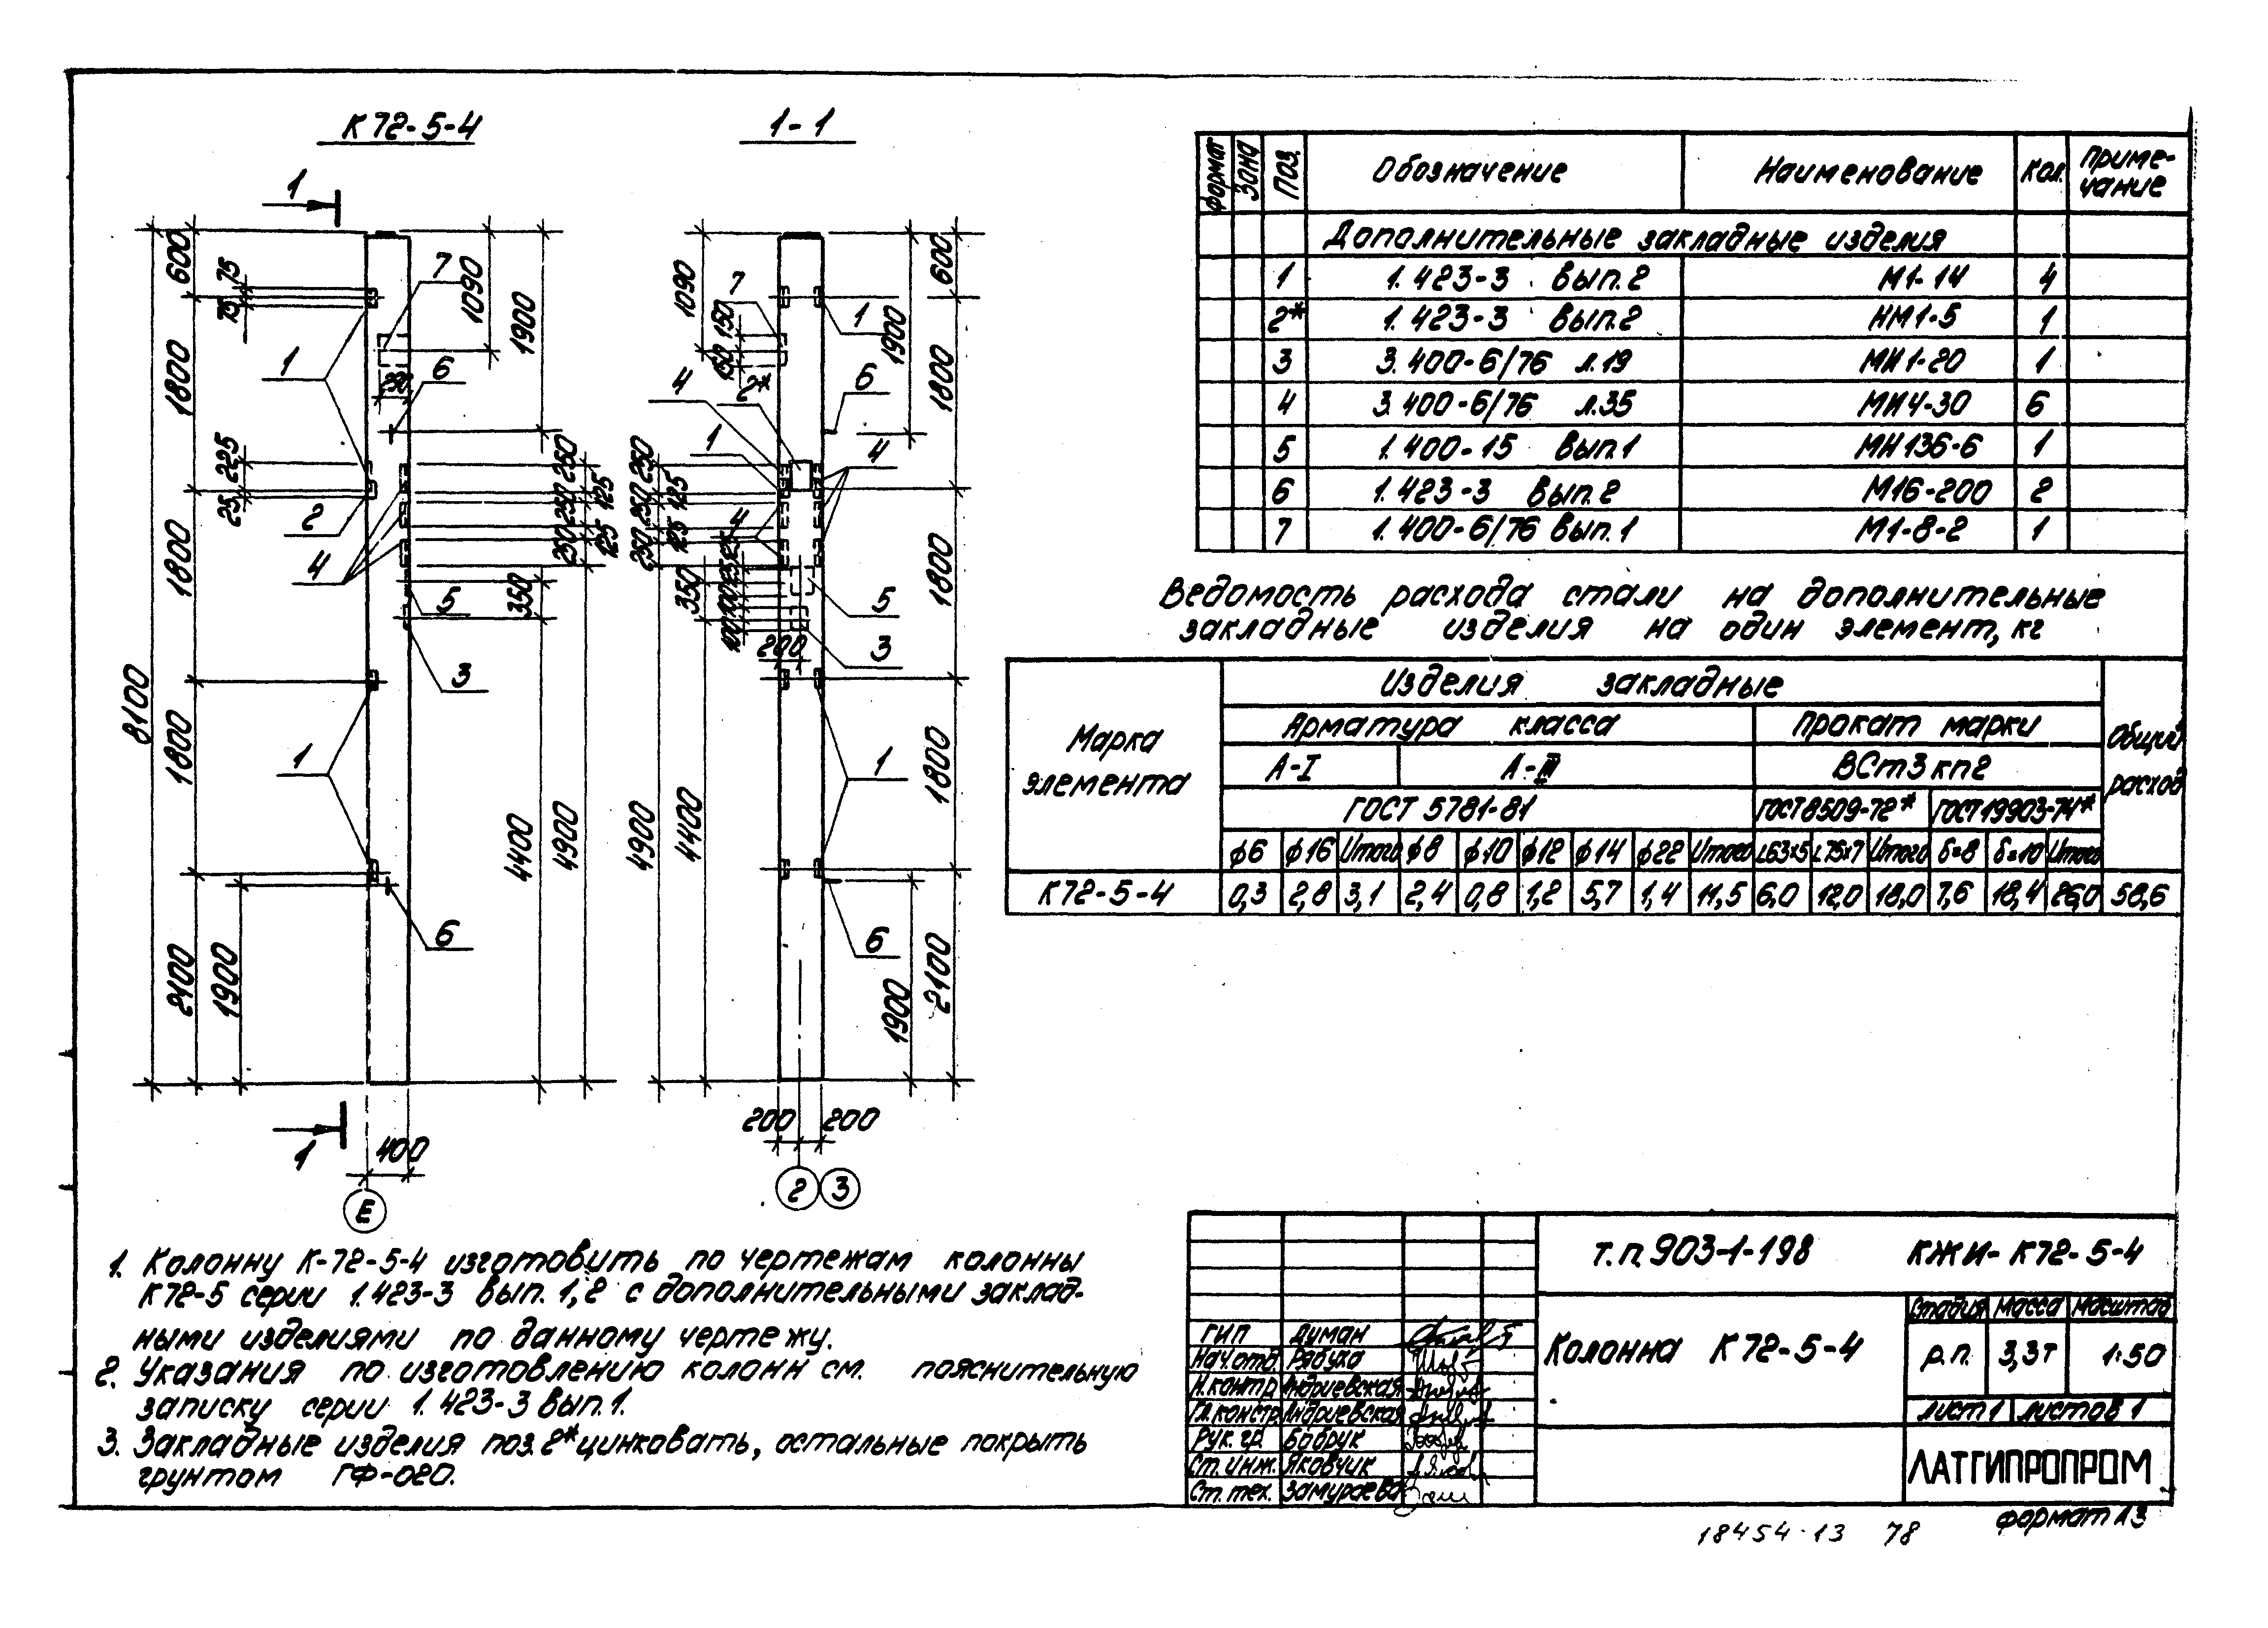 К72-5-4
1-1
1
600
75
75
1800
225
25
1800
8100
1800
2100
1900
1
7
1090
1900
6
230
2
4
250
125
250
125
250
5
350
3
1
4400
4900
6
1
400
Е
1090
7
150
150
2*
1
1900
600
6
1800
4
1
4
250
125
250
125
250
4
125
125
100
100
350
5
3
200
1800
4900
4400
1
1800
6
1900
2100
200
200
2
3
Формат Зона Поз. Обозначение Наименование Кол. Приме-
чание
Дополнительные закладные изделия
1 1.423-3 вып.2 М1-14 4
2* 1.423-3 вып.2 НМ1-5 1
3 3.400-6/76 л.19 МИ1-20 1
4 3.400-6/76 л.35 МИ4-30 6
5 1.400-15 Вып.1 МН136-6 1
6 1.423-3 вып.2 М16-200 2
7 1.400-6/76 вып.1 М1-8-2 1
Ведомость расхода стали на дополнительные
закладные изделия на один элемент, кг
Марка
элемента
Изделия закладные
Общий
расход
Арматура класса Прокат марки
А-I А-III ВСт3кп2
ГОСТ 5781-81 ГОСТ8509-72* ГОСТ19903-74*
ф6 ф16 Итого ф8 ф10 ф12 ф14 ф22 Итого L63x5 L75x7 Итого δ=8 δ=10 Итого
К72-5-4 0,3 2,8 3,1 2,4 0,8 1,2 5,7 1,4 11,5 6,0 12,0 18,0 7,6 18,4 26,0 58,6
1. Колонну К-72-5-4 изготовить по чертежам колонны
К72-5 серии 1.423-3 вып. 1,2 с дополнительными заклад-
ными изделиями по данному чертежу.
2. Указания по изготовлению колонн см. пояснительную
записку серии 1.423-3 вып.1.
3. Закладные изделия поз.2* цинковать, остальные покрыть
грунтом ГФ-020.
т.п. 903-1-198 КЖИ-К72-5-4
Колонна К72-5-4
Стадия Масса Масштаб
р.п. 3,3т 1:50
лист 1 листов 1
ЛАТГИПРОПРОМ
ГИП Диман
Нач.отд. Рябуха
Н.контр Андриевская
Гл.констр Андриевская
Рук.гр. Бобрук
Ст.инж. Яковчик
Ст.тех. Замураева
формат А3
18454-13 78